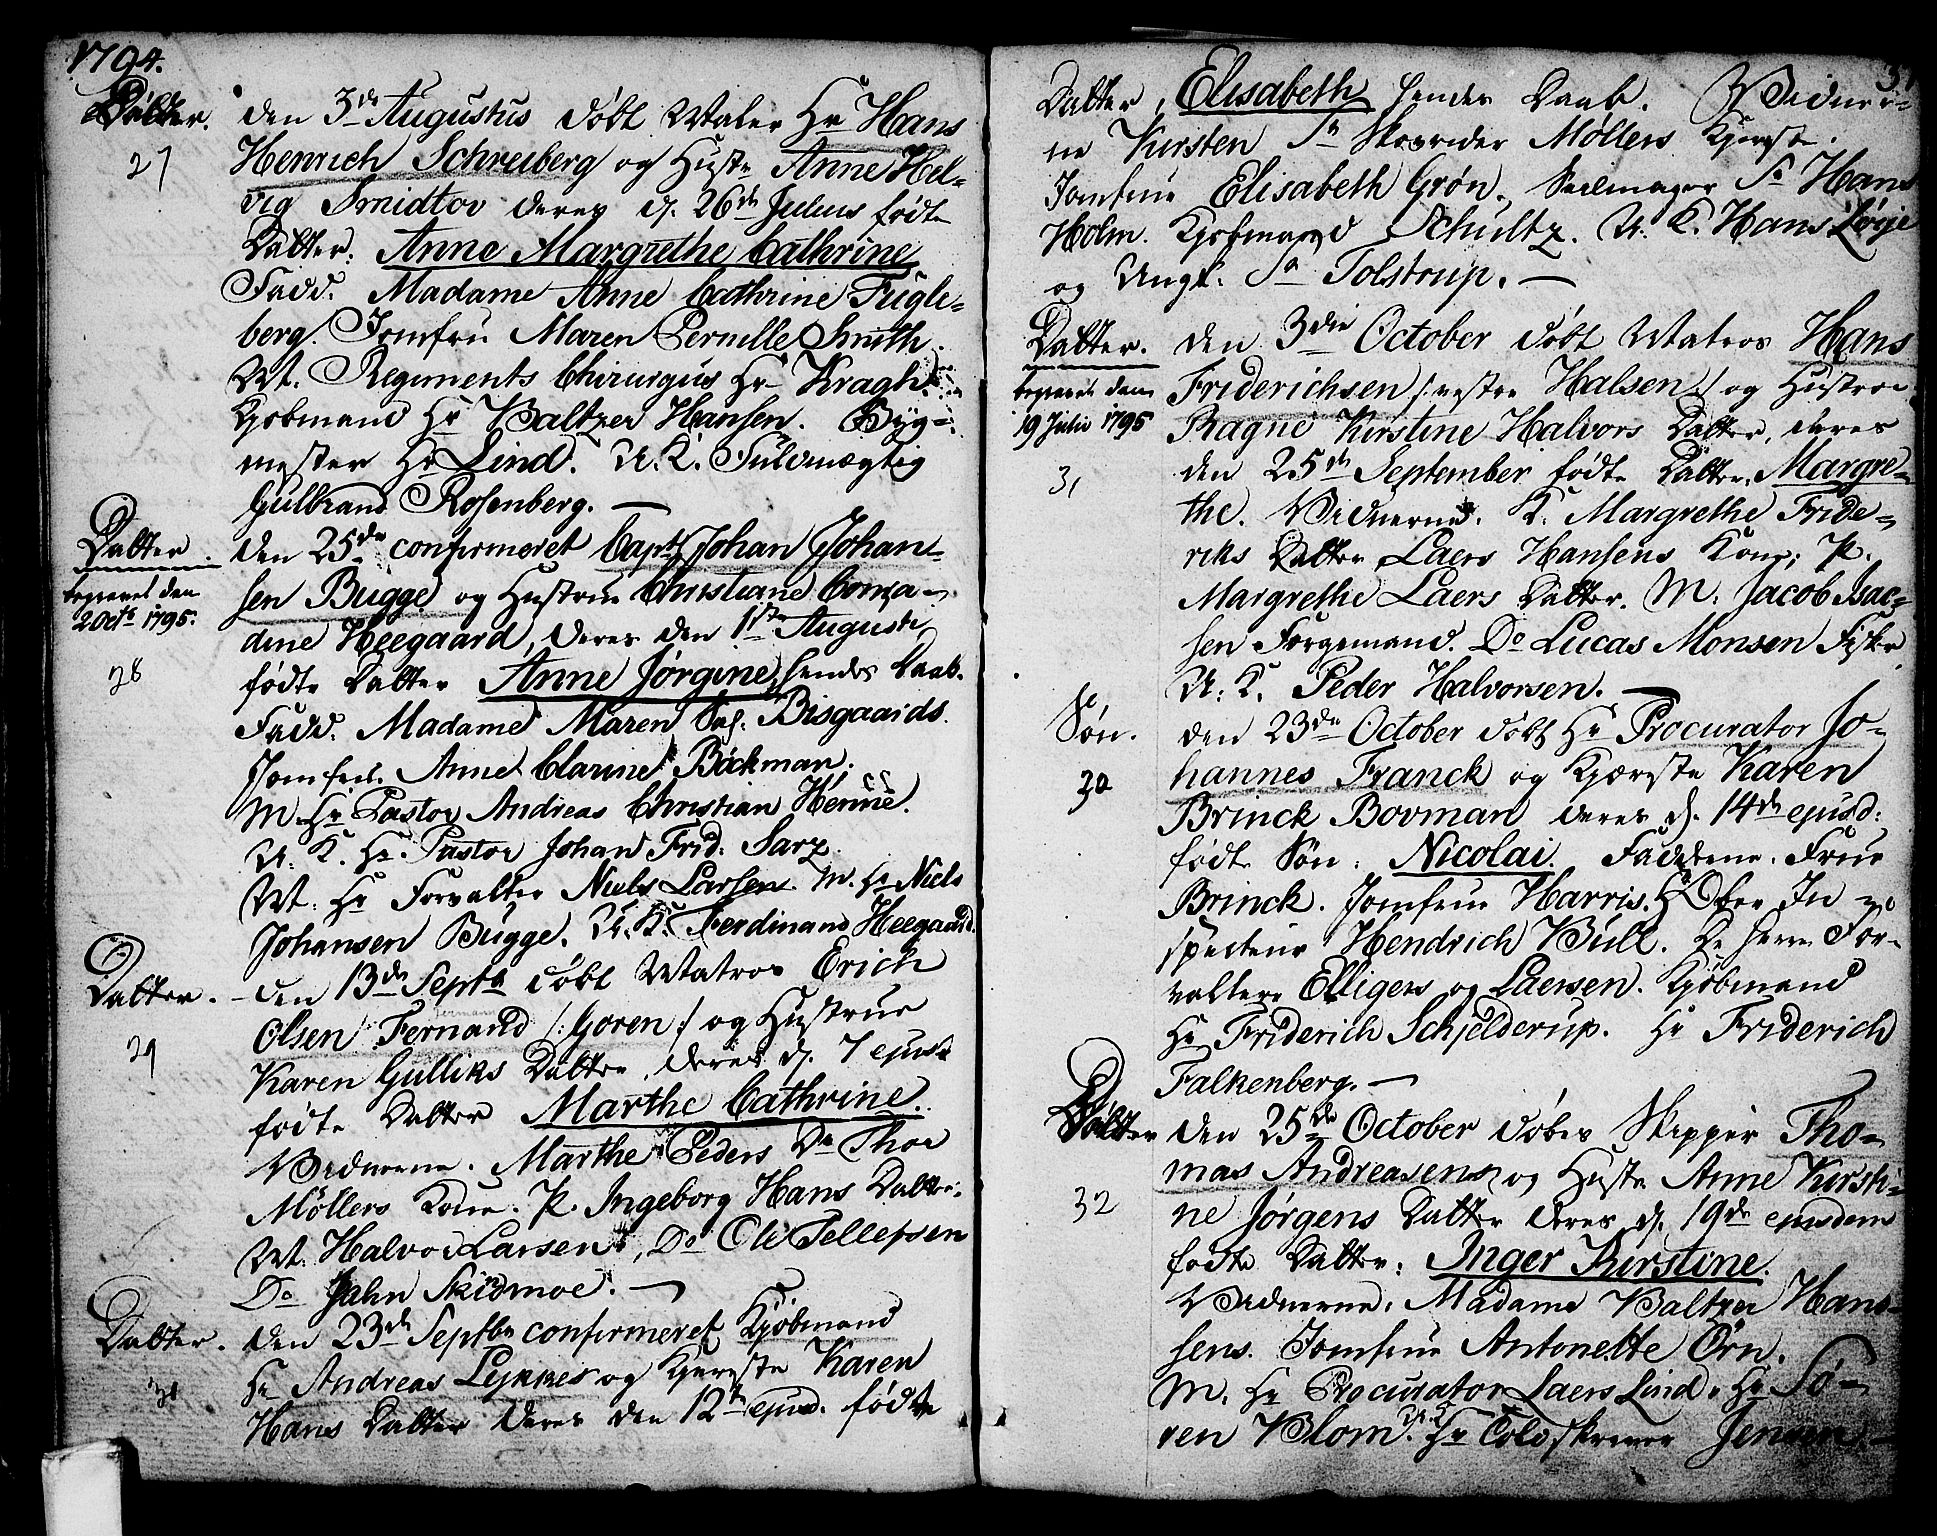 1794.
Datter. den 3de Augustus döbt Maler Hr Hans
27 Henrich Schreiberg og Hustr Anne Hel-
vig Smidtov deres d. 26de Julius fødte
Datter. Anne Margrethe Cathrine
Fadd. Madame Anne Cathrine Fugle-
berg. Jomfru Maren Pernille Smith.
M. Regiments Chirurgus Hr Kragh
Kjøbmand Hr Baltzer Hansen. Byg-
mester Hr Lind. U. K. Fuldmægtig
Gulbrand Rosenberg. —
Datter. den 25de confirmeret Capt. Johan Johan-
begravet den sen Bugge og Hustrue Christiane Conra-
2 Octb 1795. dine Heegaard, deres den 1ste Augusti
28 fødte Datter Anne Jørgine, hendes Daab.
Fadd. Madame Maren Sal. Bisgaards.
Jomfru. Anne Clarine Böckman.
M. Hr Pastor Andreas Christian
U. K. Hr. Pastor Johan Frid: Sarz.
M. Hr Forvalter Niels Larsen. M. Hr Niels
Johansen Bugge. U. K. Ferdinand Heegaard.
Datter. den 13de Septbr döbt Matros Erich
Olsen Fernand /: Goren :/ og Hustrue
29 Karen Gulliks Datter, deres d. 7 ejusd.
fødte Datter Marthe Cathrine.
Vidnerne. Marthe Peders Dr Thor
Møllers Kone. P. Ingeborg Hans Datter.
M. Halvor Larsen, Do Ole Tellefsen
Do Jahn Skidmoe. —
Datter. den 23de Septbr confirmeret Kjøbmand
Hr Andreas Lykkes og Kjereste Karen
Hans Datter deres den 12te ejusd. fødte
Datter, Elisabeth hendes Daab. Vidner-
ne Kirsten Sr Skovrider Møllers Kjereste.
Jomfrue Elisabeth Grøn. Seilmager Sr Hans
Holm. Kjøbmand Schultz. U. K. Hans Løvje
og Ungk. Sr Tolstrup. —
Datter. den 3die October döbt Matros Hans
begravet den Friderichsen /: vestre Halsen :/ og Hustrue
19 Julii 1795 Ragne Kirstine Halvors Datter, deres
31 den 25de September fødte Datter. Margre-
the. Vidnerne. K. Margrethe Fride-
riks Datter Laers Hansens Kone; P.
Margrethe Laers Datter. M. Jacob Isac-
sen Færgemand. Do Lucas Monsen Fisker
U. K. Peder Halvorsen. —
Søn. den 23de October döbt Hr Procurator Jo-
30 hannes Franck og Kjæreste Karen
Brinck Bovman deres d. 14de ejusd:
fødte Søn: Nicolai. Fadderne. Frue
Brinck. Jomfrue Harris. Hr Ober In-
specteur Hendrich Bull. De Herrer For-
valtere Elligers og Laersen. Kjøbmand
Hr Friderich Schjelderup. Hr Friderich
Falkenberg. —
Datter den 25de October döbes Skipper Tho-
mas Andreasens og Hustr Anne Kirsti-
32 ne Jørgens Datter deres d. 19de ejusdem
fødte Datter: Inger Kirstine.
Vidnerne: Madame Baltzer Han-
sens. Jomfrue Antonette Örn.
M. Hr Procurator Laers Lind. Hr Sö-
ren Blom. U. K. Hr Toldskriver Jensen. —